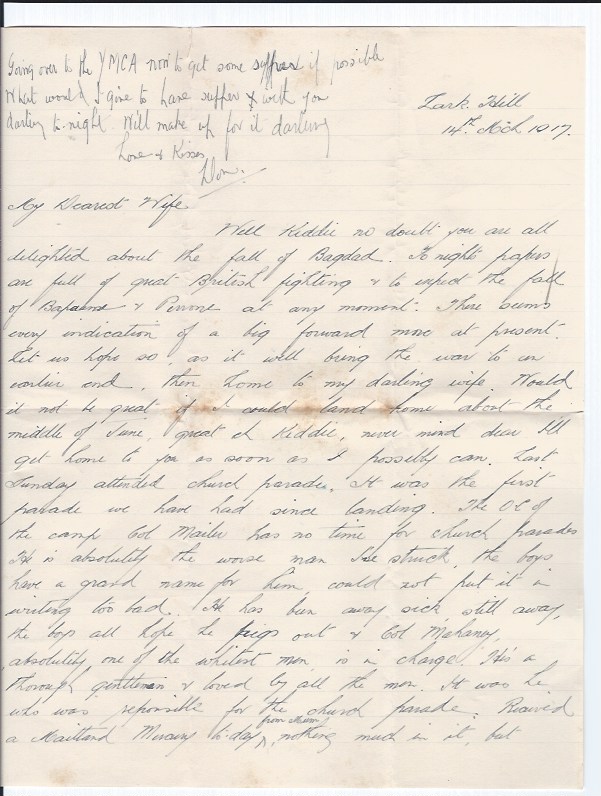 Going over to the YMCA now to get some supper if possible
What would I give to have supper with you
darling to-night. Will make up for it darling
Love & Kisses
Don.
Lark Hill
14th Mch 1917.
My Dearest Wife
Well Kiddie no doubt you are all
delighted about the fall of Bagdad. To nights papers
are full of great British fighting & to expect the fall
of Bapaume & Peronne at any moment. There seems
every indication of a big forward move at present.
Let us hope so, as it will bring the war to an
earlier end, then home to my darling wife. Would
it not be great if I could land home about the
middle of June, great eh Kiddie, never mind dear I'll
get home to you as soon as I possibly can. Last
Sunday attended church parade. It was the first
parade we have had since landing. The OC of
the camp Col Mailer has no time for church parades
He is absolutely the worse man I've struck, the boys
have a grand name for him, could not put it in
writing too bad. He has been away sick still away,
the boys all hope he pigs out & Col Mahaney,
absolutely one of the whitest men, is in charge. He's a
thorough gentlemen & loved by all the men. It was he
who was reponsible for the church parade. Received
a Maitland Mercury to-day from Mum, nothing much in it, but